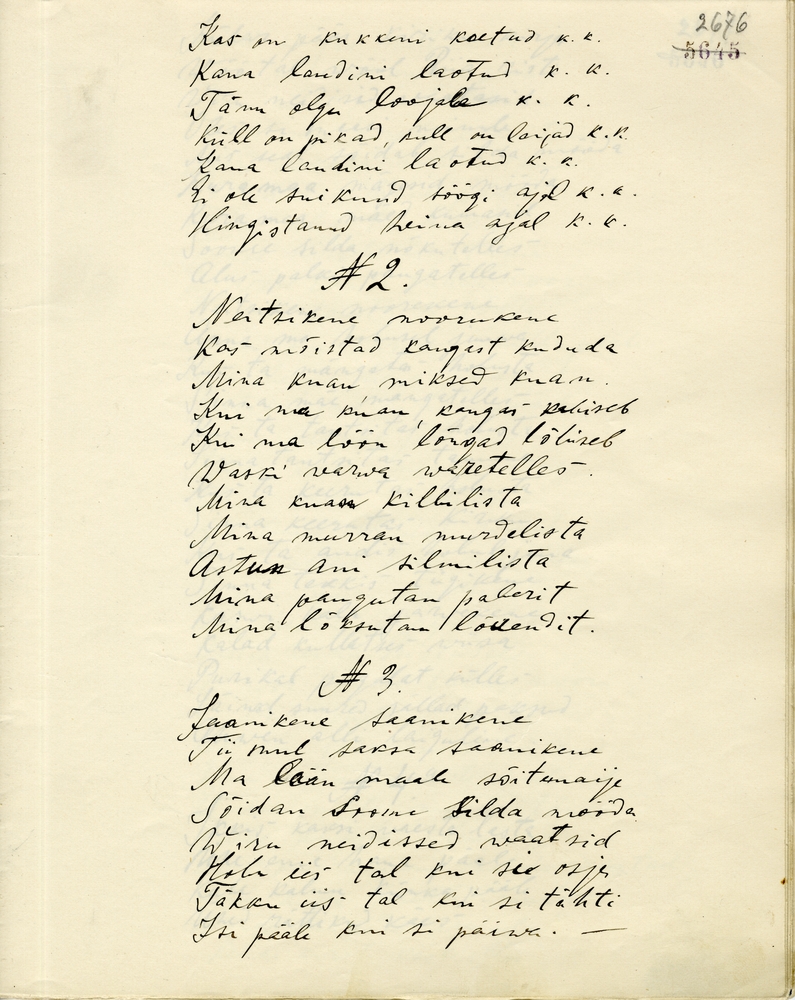 2676
5645
Kas on kukkeni kaetud k. k.
Kana landini laotud k. k.
Tänu olgu loojale k. k.
Küll on pikad, küll on laijad k. k.
Kana landini laotud k. k.
Ei ole suikund söögi ajal k. k.
Hingistanud heina ajal k. k.
N 2.
Neitsikene noorukene
Kas mõistad kangast kududa
Mina kuan miksed kuan.
Kui ma kuan, kangas kabiseb
Kui ma löön lõngad lõbiseb
Waski warwa waretelles.
Mina kuan killilista
Mina murran murdelista
Astun ani silmilista
Mina pangutan palerit
Mina lõksutan lõuendit.
N 3.
Jaanikene saanikene
Tii mul saksa saanikene
Ma lään maale sõitemaije
Sõidan Soome silda mööda
Wiru neidissed waatsid
Hobu iis tal kui sie osje
Täkku iis tal kui si tähti
Isi pääle kui si päiwa. —